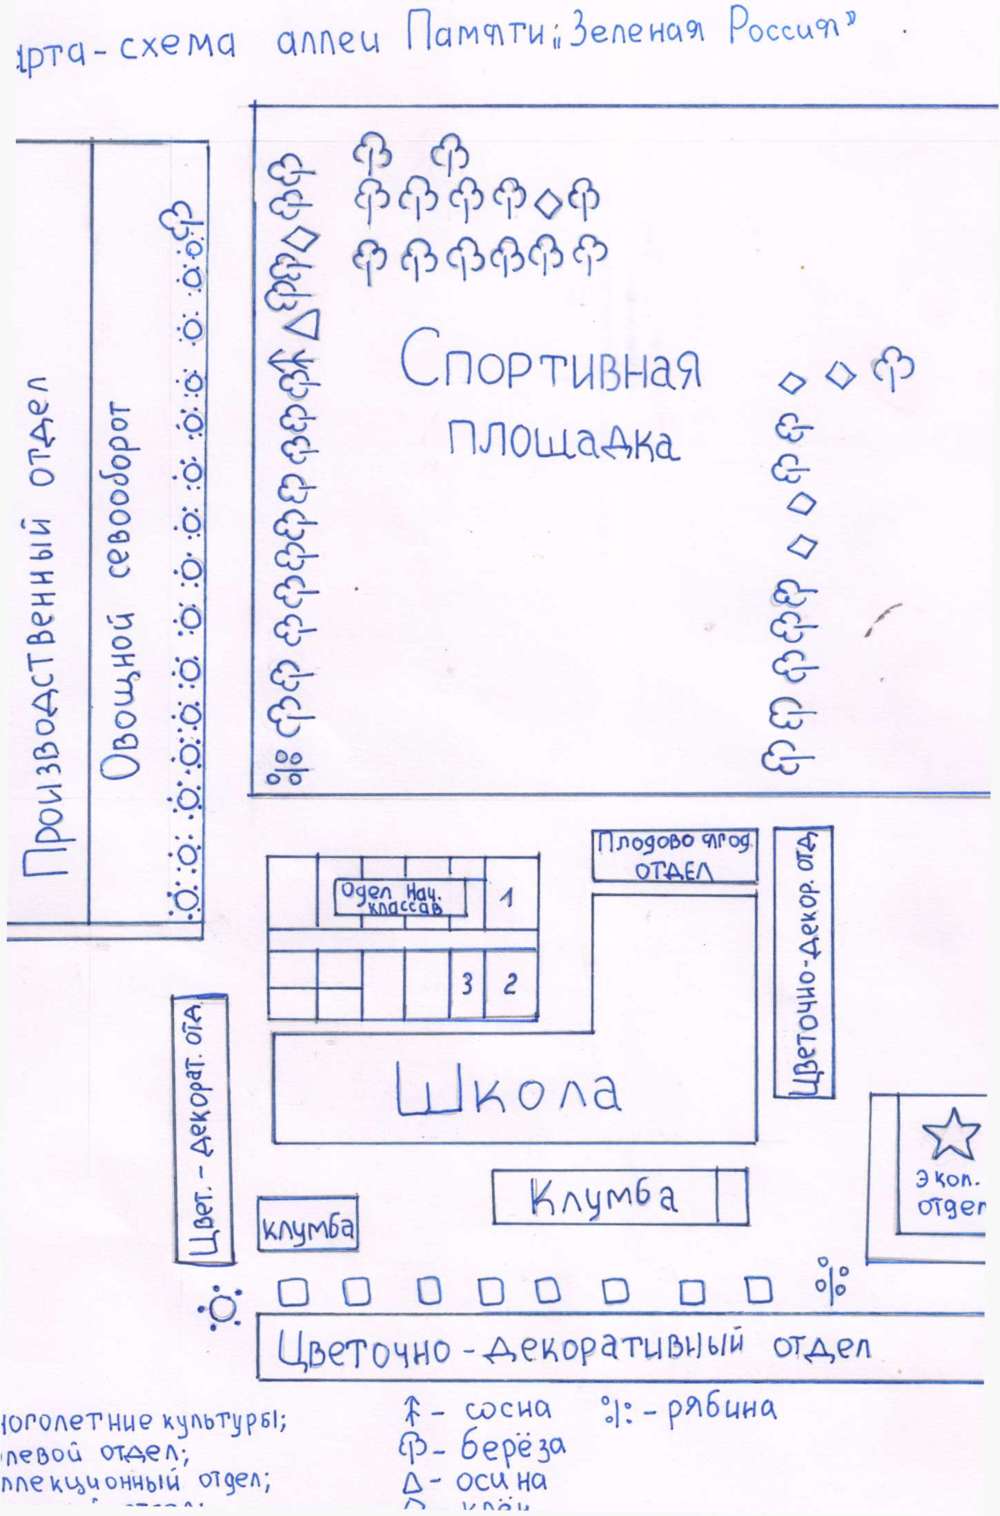 арта-схема аллеи Памяти „Зеленая Россия”
Производственный отдел
Овощной севооборот
Спортивная
площадка
Плодово ягод.
ОТДЕЛ
Цветочно-декор. отд.
Одел Нач.
классав
1
3 2
Школа
Цвет. - декорат. отд.
Экол.
отдел
Клумба
клумба
Цветочно-декоративный отдел
ноголетние культуры;
олевой отдел;
ллекционный отдел;
- сосна
- берёза
- осина
- клён
- рябина